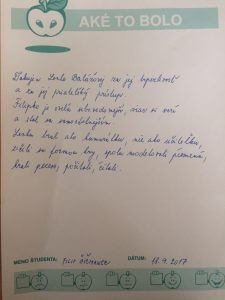 AKÉ TO BOLO
Ďakujem Lenke Balážovej za jej trpezlivosť
a za jej priateľský prístup.
Filipko je oveľa sebavedomejší, viac si verí
a stal sa samostatnejším.
Lenku bral ako kamarátku, nie ako učiteľku,
učili sa formou hry, spolu modelovali písmená,
hrali pexeso, počítali, čítali.
MENO ŠTUDENTA: FILIP
DÁTUM: 18.9.2017